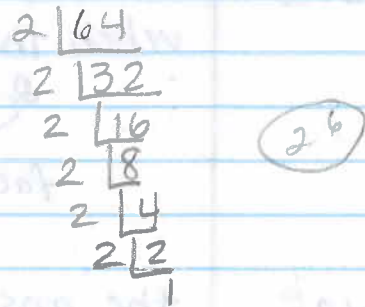 2 64
2 32
2 16
2 8
2 4
2 2
1
2^6